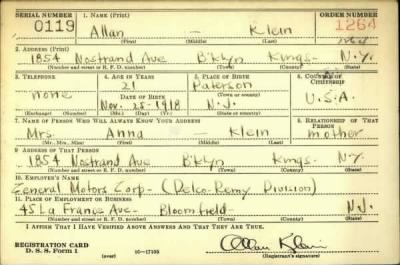 SERIAL NUMBER 1. NAME (Print) ORDER NUMBER
0119 Allan — Klein 1264
(First) (Middle) (Last)
2. ADDRESS (Print)
1854 Nostrand Ave B'klyn Kings N.Y.
(Number and street or R. F. D. number) (Town) (County) (State)
3. TELEPHONE 4. AGE IN YEARS 5. PLACE OF BIRTH 6. COUNTRY OF CITIZENSHIP
none 21 Paterson U.S.A.
DATE OF BIRTH (Town or county)
Nov. 25-1918 N.J.
(Exchange) (Number) (Mo.) (Day) (Yr.) (State or country)
7. NAME OF PERSON WHO WILL ALWAYS KNOW YOUR ADDRESS 8. RELATIONSHIP OF THAT PERSON
Mrs. Anna — Klein mother
(Mr., Mrs., Miss) (First) (Middle) (Last)
9. ADDRESS OF THAT PERSON
1854 Nostrand Ave B'klyn Kings N.Y.
(Number and street or R. F. D. number) (Town) (County) (State)
10. EMPLOYER'S NAME
General Motors Corp- (Delco-Remy Division)
11. PLACE OF EMPLOYMENT OR BUSINESS
45 La France Ave- Bloomfield- N.J.
(Number and street or R. F. D. number) (Town) (County) (State)
I AFFIRM THAT I HAVE VERIFIED ABOVE ANSWERS AND THAT THEY ARE TRUE.
REGISTRATION CARD
D. S. S. Form 1 (over) 16—17105 Allan Klein
(Registrant's signature)